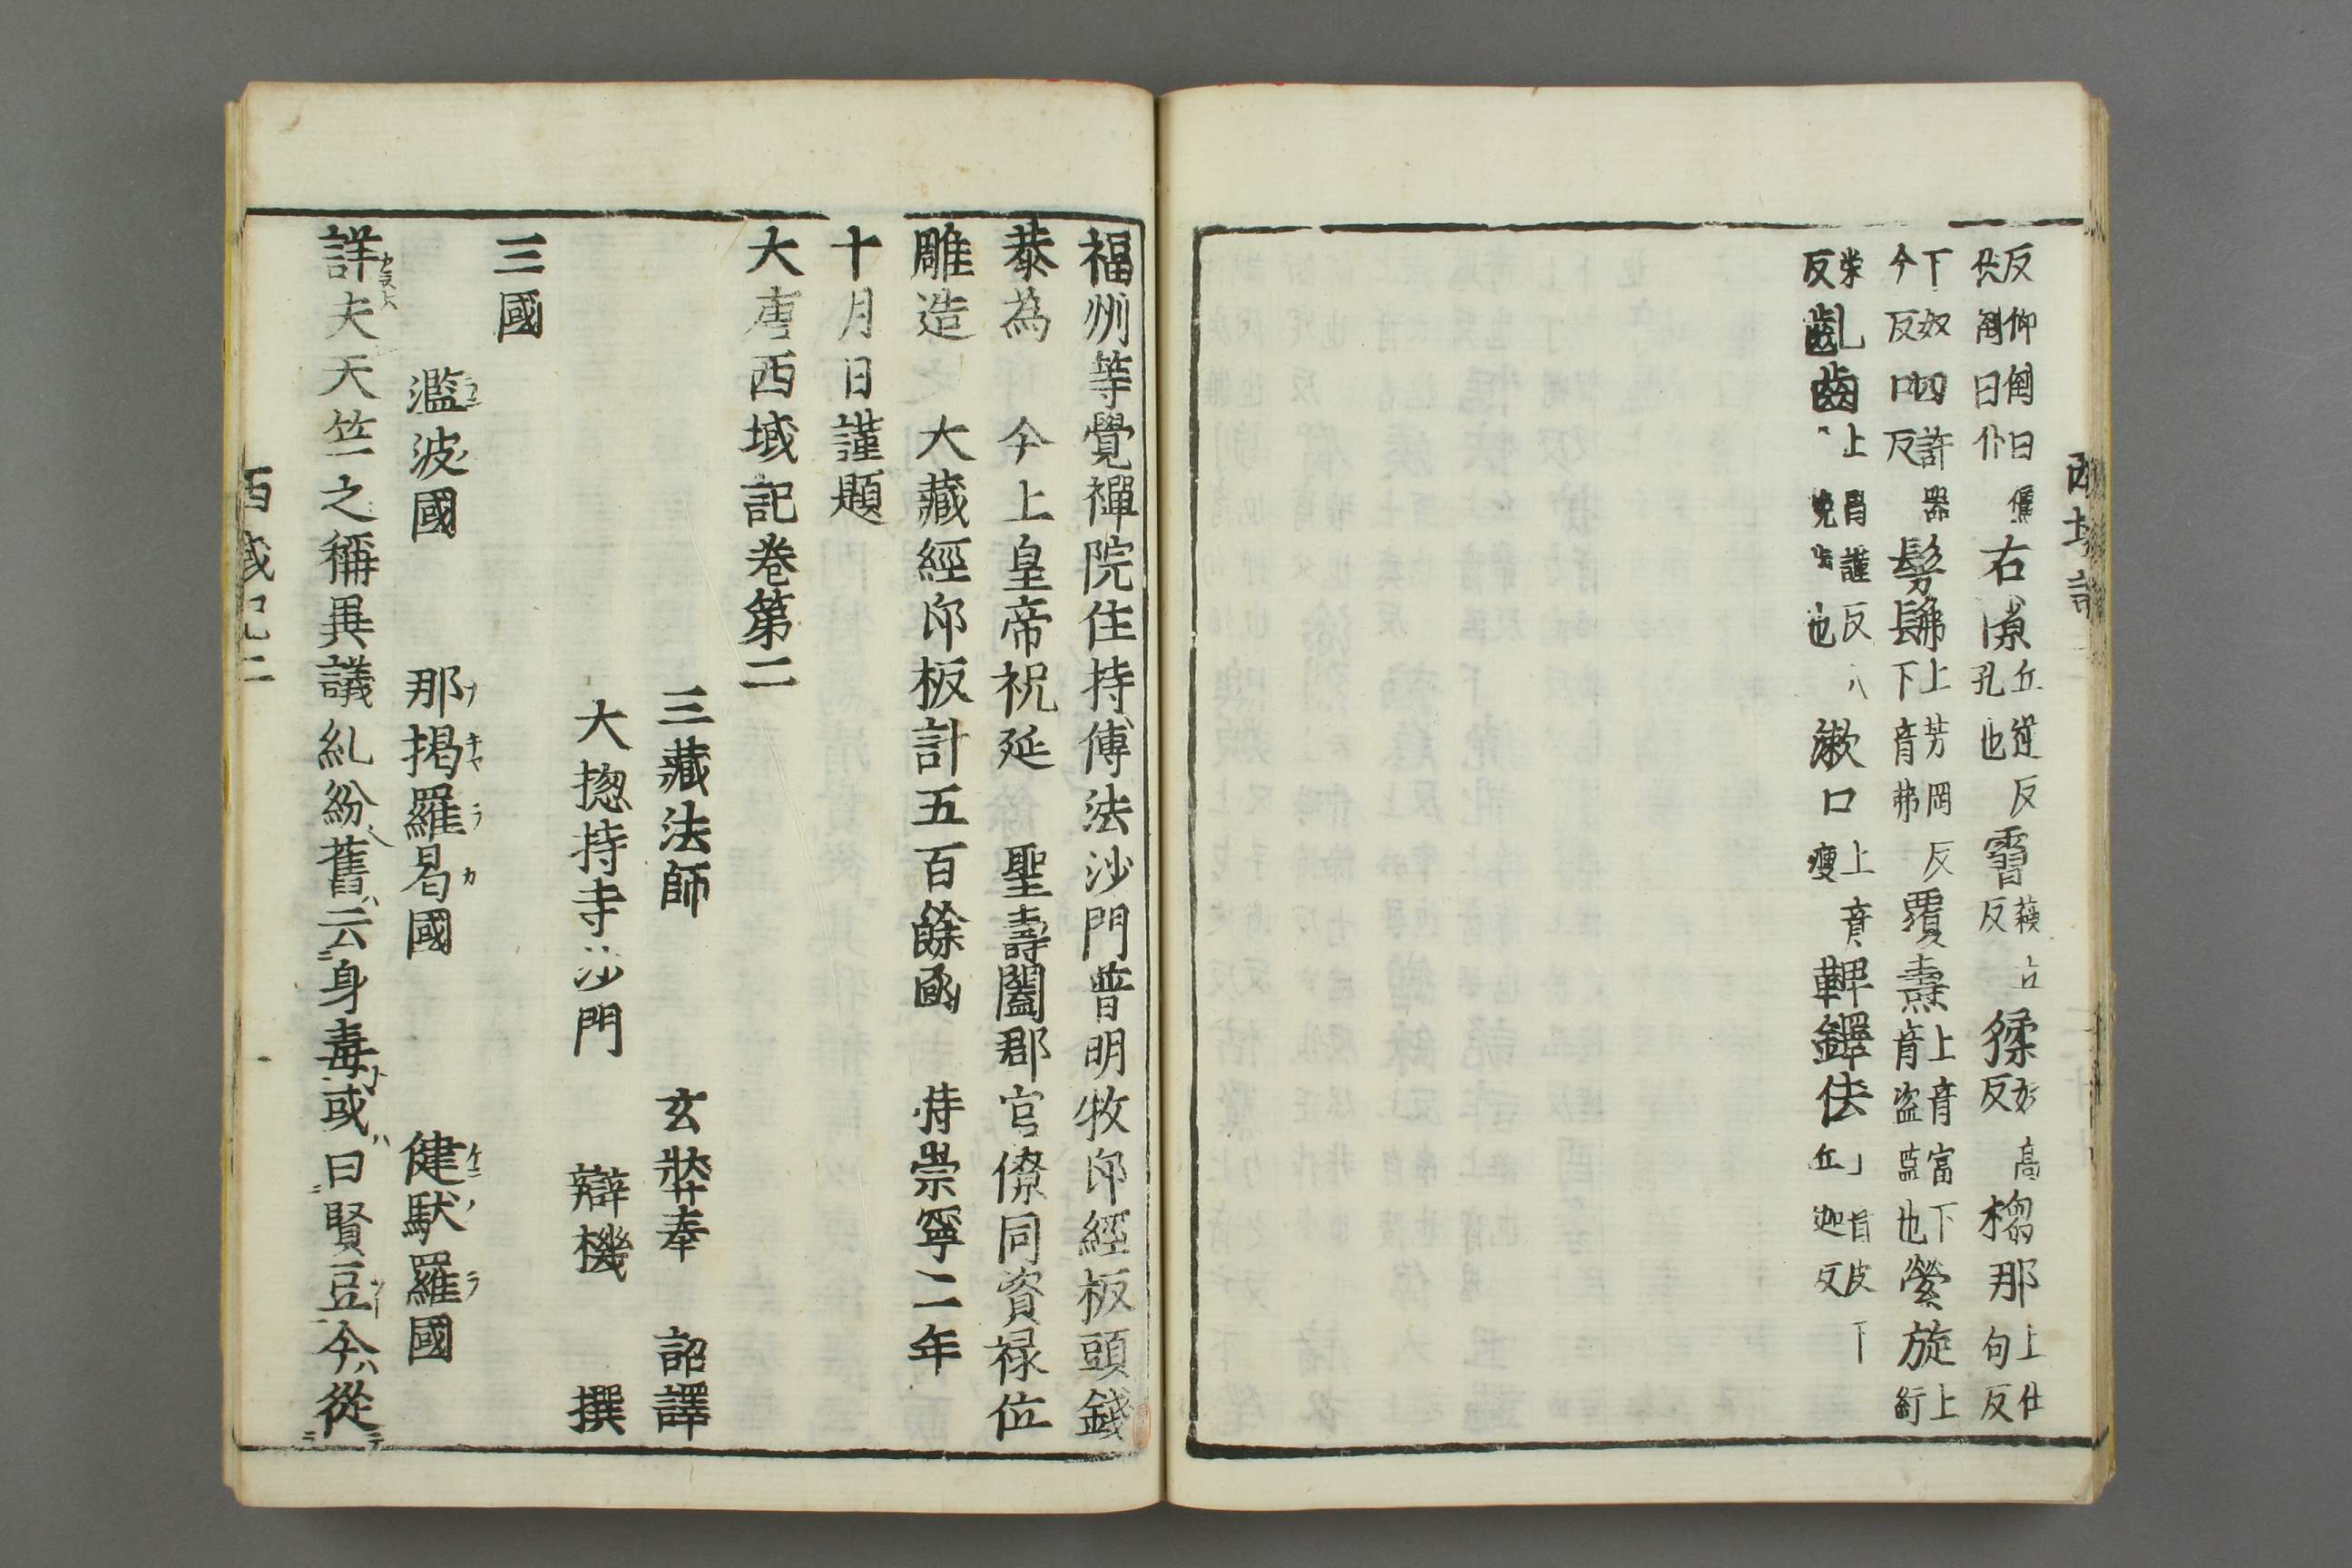 反仰倒曰僵
伏倒曰仆
右隙
丘逆反
孔也
霫
反
猱
奴高
反
榴那
上仕
句反
下奴
今反
呬
許器
反
髣髴
上芳岡反
下音弗
覆燾
上音富下
音盗蓋也
縈旋
上
反
齔齒
上昌謹反
毀齒也
漱口
上音
瘦
鞞鐸佉
丘迦反
福州等覺禪院住持傳法沙門普明收印經板頭錢
恭為　今上皇帝祝延　聖壽闔郡官僚同資禄位
雕造　大藏經印板計五百餘函　時崇寧二年
十月日謹題
大唐西域記卷第二
三藏法師　玄奘奉　詔譯
大揔持寺沙門　辯機　撰
三國
濫波國　那揭羅曷國　健馱羅國
詳夫天竺之稱異議糺紛舊云身毒或曰賢豆今從
西域記二